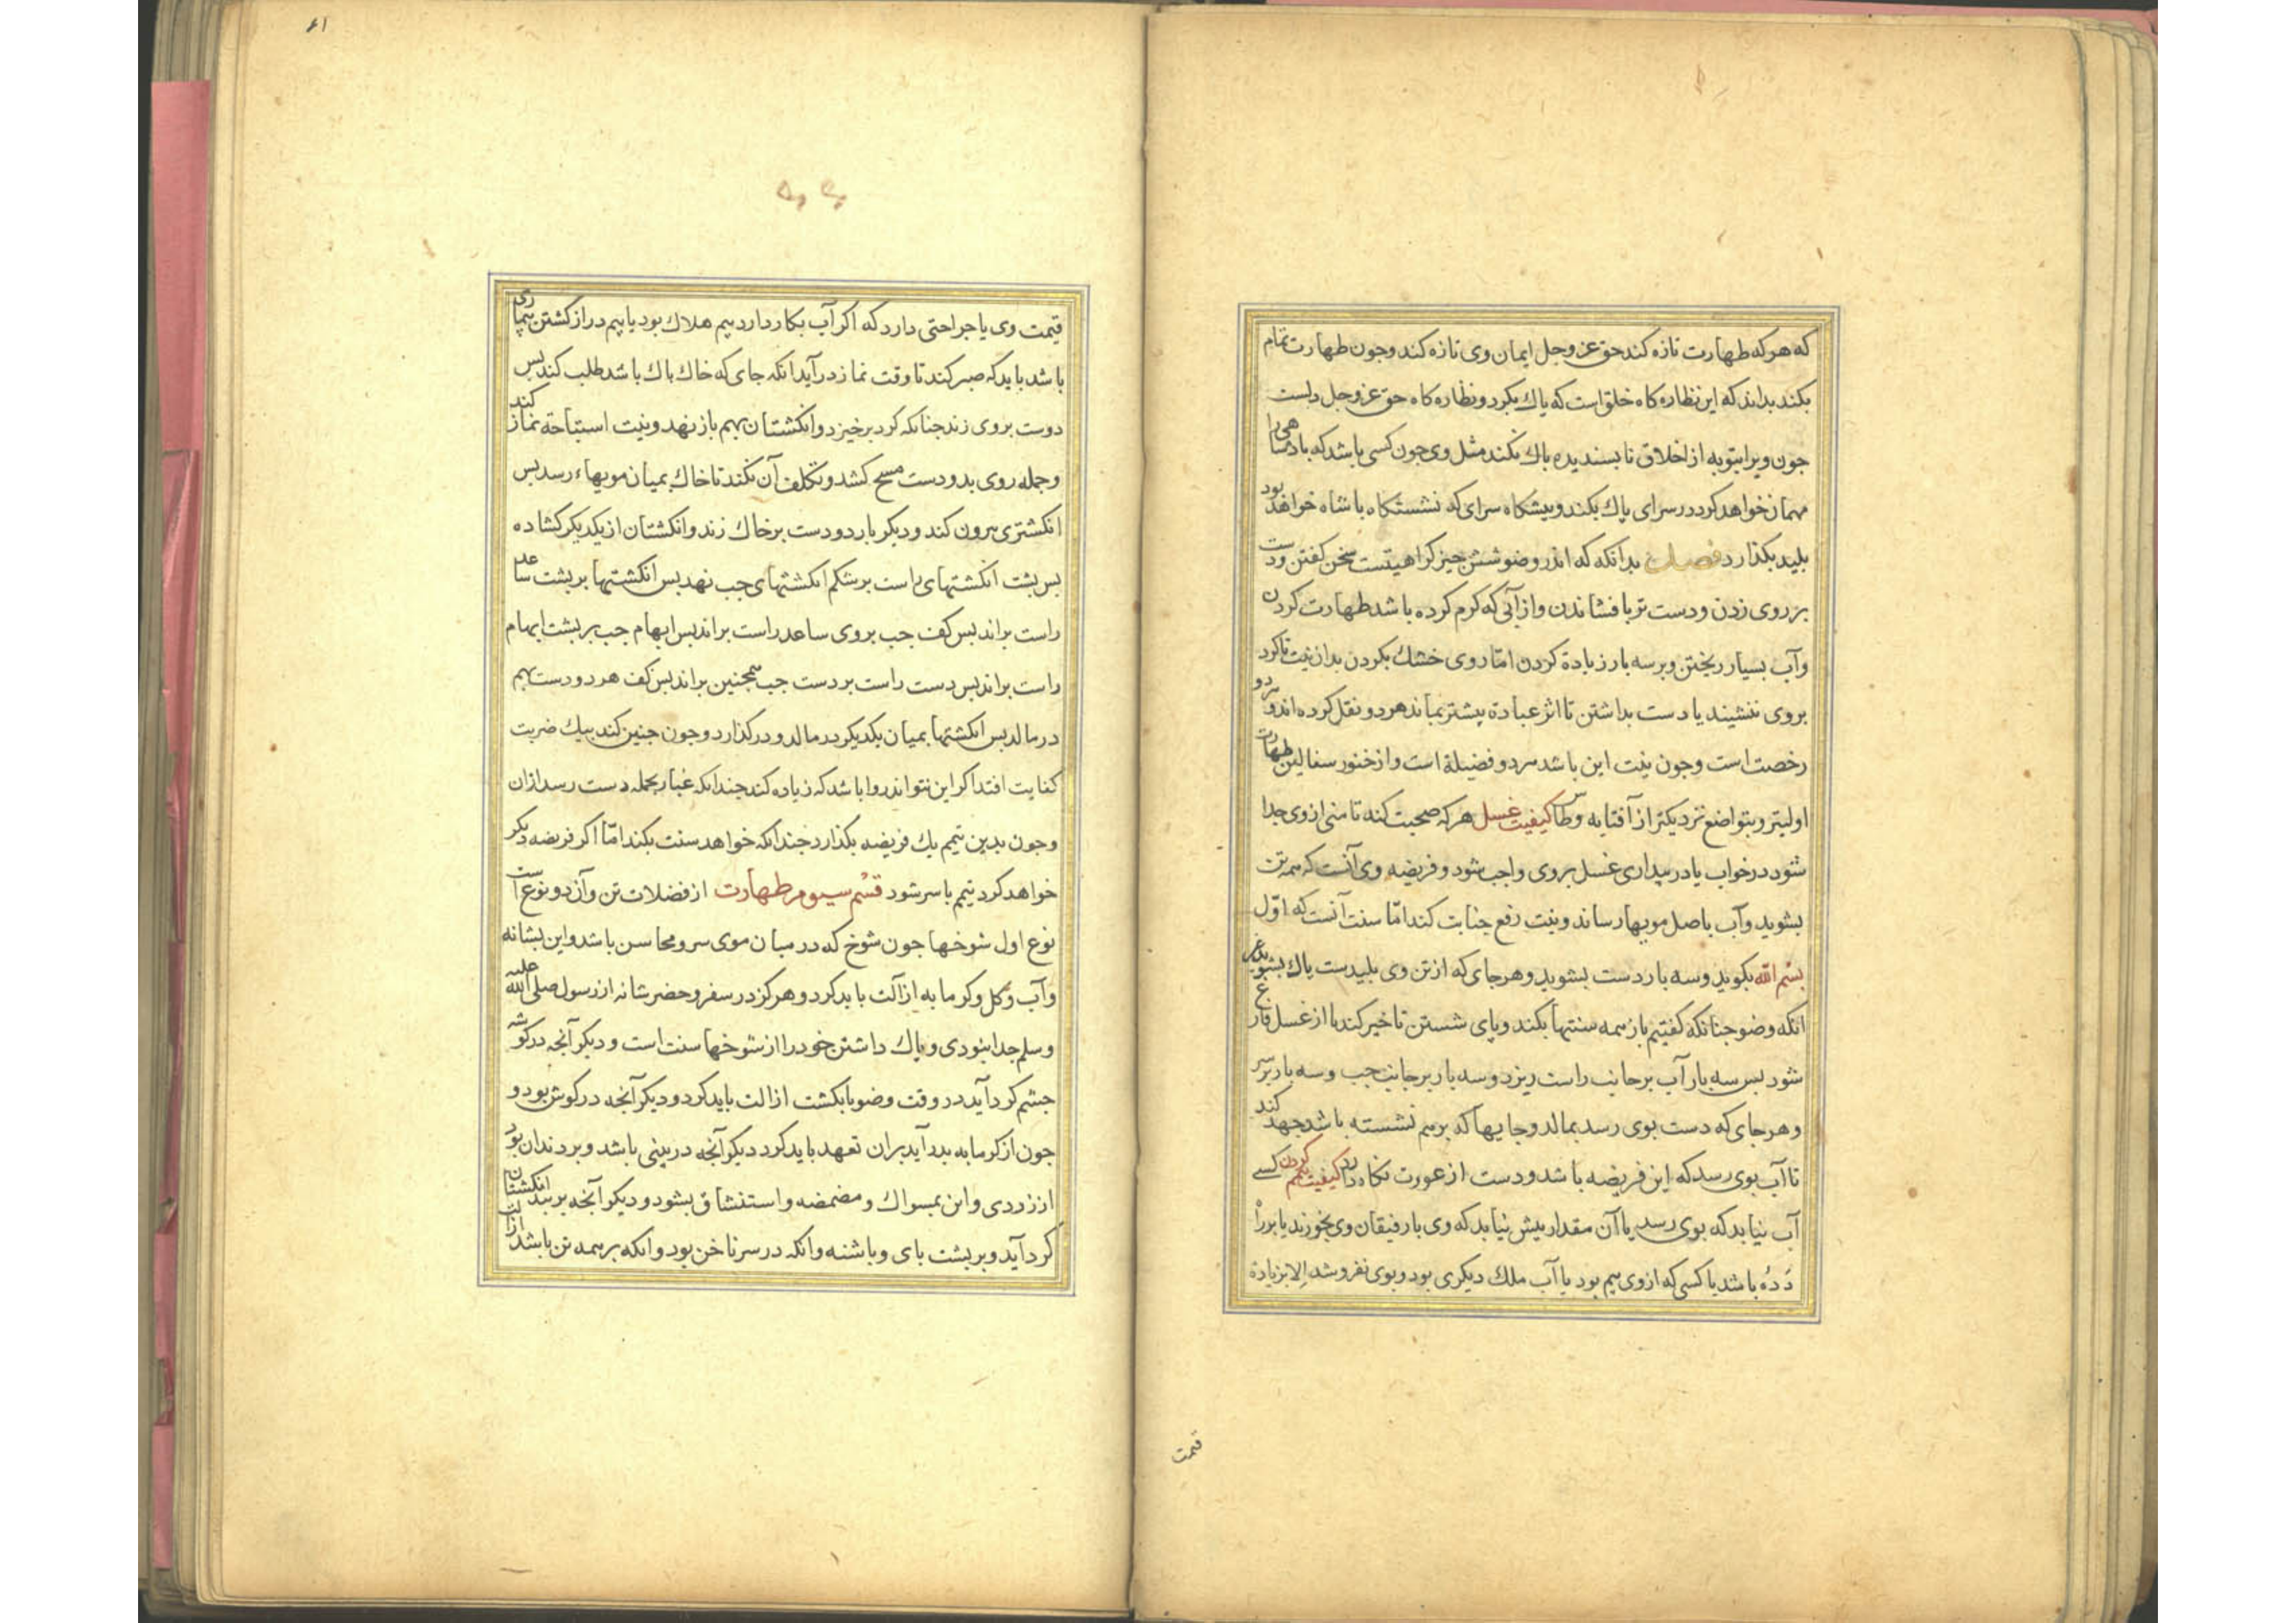 که هرکه طهارت تازه کند حق عز وجل ایمان وی تازه کند وجون طهارت تمام
بکند بداند که این نظاره کاه خلق است که پاك بکرد و نظاره کاه حق عز وجل دلست
جون ویرا بتوبه از اخلاق نابسندیده باك نکند مثل وی جون کسی باشد که بادشاهی را
مهمان خواهد کرد در سرای پاك بکند و پیشکاه سرای که نشستکاه باشاه خواهد بود
بلید بکذارد فصل بدانکه که اندر وضو شش جیز کراهیتست سخن کفتن ودست
بر روی زدن ودست تر بافشاندن واز آبی که کرم کرده باشد طهارت کردن
وآب بسیار ریختن وبر سه بار زیادة کردن امّا روی خشك بکردن بدان نیت تا کرد
بروی ننشیند یا دست بداشتن تا اثر عبادة بیشتر بماند هر دو نقل کرده اند و هر دو
رخصت است وجون نیت این باشد هر دو فضیلة است واز خنور سفالین طهارت
اولیتر وبتواضع نزدیکتر از آفتابه وطاس کیفیت غسل هرکه صحبت کند تا منی ازوی جدا
شود در خواب یا در بیداری غسل بروی واجب شود و فریضه وی آنست که همه تن
بشوید وآب باصل مویها رساند ونیت رفع جنابت کند امّا سنت آنست که اوّل
بسم الله بکوید وسه بار دست بشوید وهر جای که از تن وی بلیدست پاك بشوید
انکه وضو جنانکه کفتیم باز همه سنتها بکند وپای شستن تاخیر کند تا از غسل فارغ
شود بس سه بار آب بر جانب راست ریزد وسه بار بر جانب جب وسه بار بر سر
وهر جای که دست بوی رسد بمالد وجایها که برهم نشسته باشد جهد کند
تا آب بوی رسد که این فریضه باشد ودست از عورت نکاه دارد کیفیت تیمم کردن کسی
آب نیابد که بوی رسد یا آن مقدار بیش نیابد که وی با رفیقان وی بخورند یا بر راه
دَدَه باشد یا کسی که از وی بیم بود یا آب ملك دیکری بود وبوی نفروشد الا بزیادة
قیمت
۶۱
قیمت وی یا جراحتی دارد که اکر آب بکار دارد بیم هلاك بود یا بیم دراز کشتن بیماری
باشد باید که صبر کند تا وقت نماز در آید انکه جای که خاك باك باشد طلب کند بس
دوست بروی زند جنانکه کرد برخیزد وانکشتان بهم باز نهد ونیت استباحة نماز کند
وجمله روی بدو دست مسح کشد وتکلف آن نکند تا خاك بمیان مویهاء رسد بس
انکشتری بیرون کند ودیکر بار دو دست بر خاك زند وانکشتان از یکدیکر کشاده
بس بشت انکشتهای راست بر شکم انکشتهای جب نهد بس انکشتها بر بشت ساعد
راست براند بس کف جب بروی ساعد راست براند بس ابهام جب بر بشت ابهام
راست براند بس دست راست بر دست جب همجنین براند بس کف هر دو دست بهم
در مالد بس انکشتها بمیان یکدیکر در مالد و در کذارد وجون جنین کند بیك ضربت
کفایت افتد اکر این نتواند روا باشد که زیاده کند جندانکه غبار بجمله دست رسد ازان
وجون بدین تیمم یك فریضه بکذارد جندانکه خواهد سنت بکند امّا اکر فریضه دیکر
خواهد کرد تیمم با سر شود قسم سیوم طهارت از فضلات تن وآن دو نوع است
نوع اول شوخها جون شوخ که در میان موی سر ومحاسن باشد واین بشانه
وآب وکل وکرمابه ازالت باید کرد وهرکز در سفر وحضر شانه از رسول صلی الله علیه
وسلم جدا نبودی وپاك داشتن خود را از شوخها سنت است ودیکر آنجه در کوشه
جشم کرد آید در وقت وضو بانکشت ازالت باید کرد ودیکر آنجه در کوش بود و
جون از کرمابه بدر آید بران تعهد باید کرد دیکر آنجه در بینی باشد وبر دندان بود
از زردی واین بمسواك ومضمضه واستنشاق بشود ودیکر آنجه بر بند انکشتان
کرد آید وبر بشت بای وباشنه وانکه در سر ناخن بود وانکه بر همه تن باشد ازالت